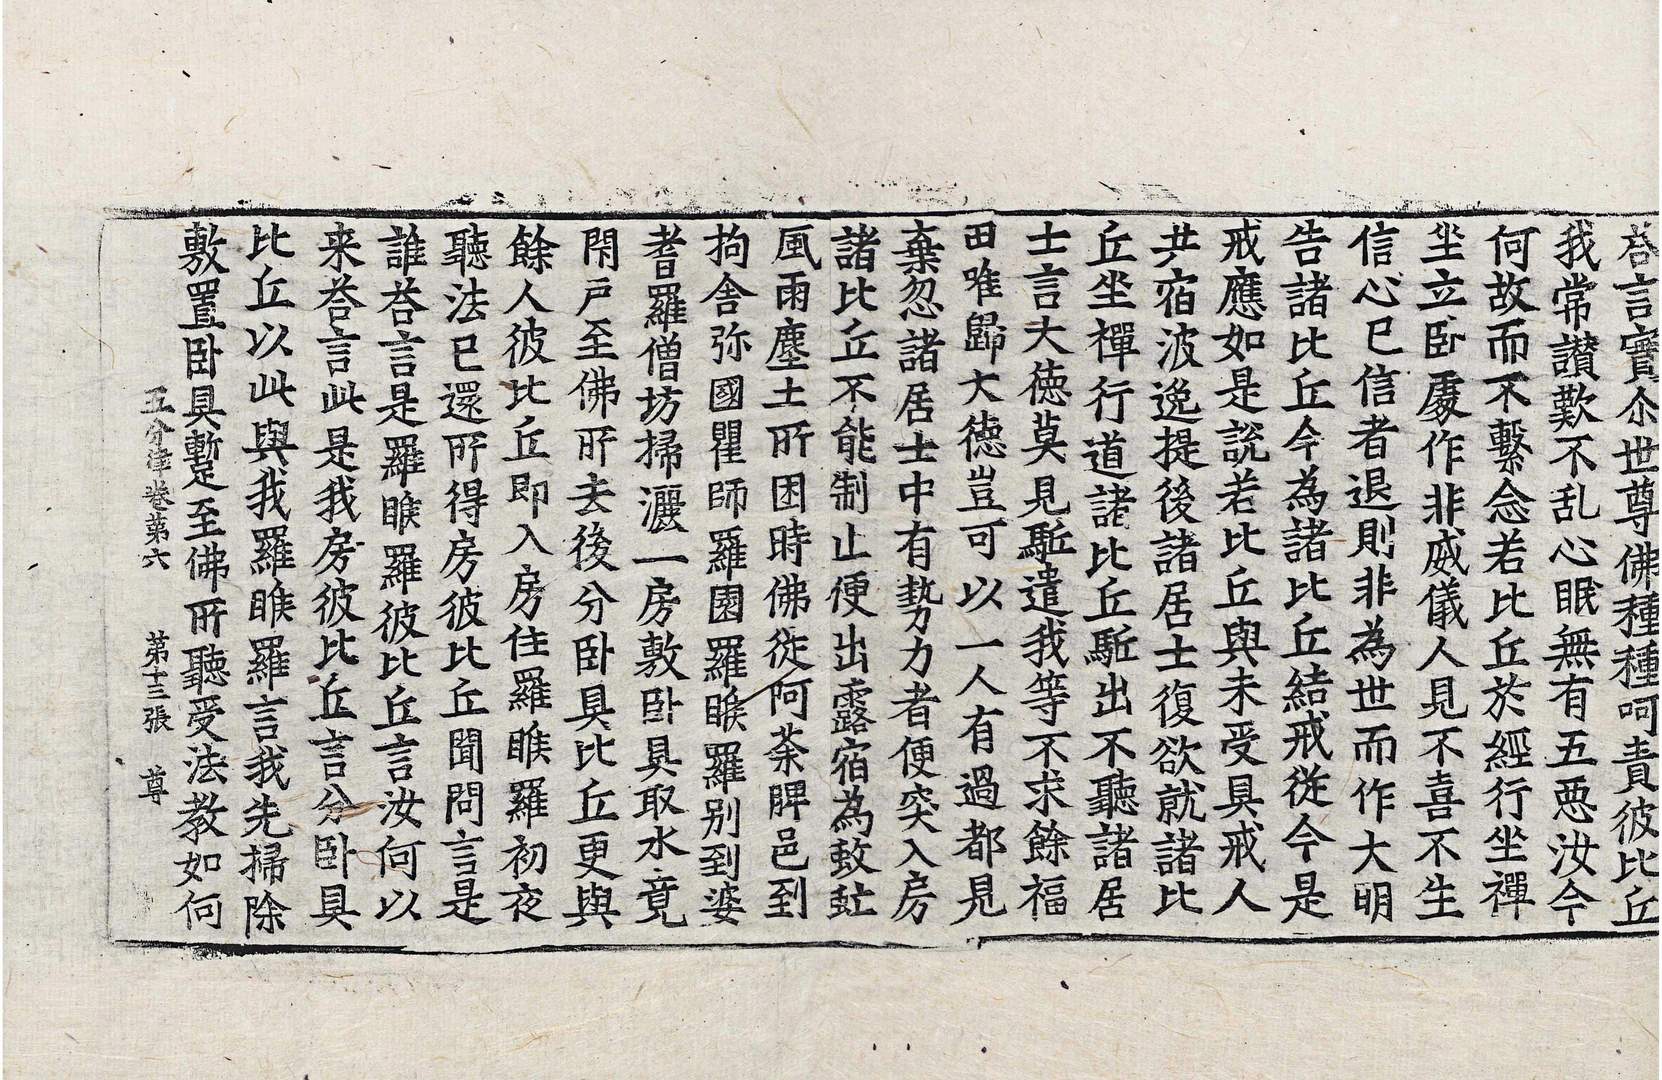 荅言實尒世尊佛種種呵責彼比丘
我常讃歎不乱心眠無有五惡汝今
何故而不繫念若比丘於經行坐禪
坐立卧處作非威儀人見不喜不生
信心已信者退則非為世而作大明
告諸比丘今為諸比丘結戒從今是
戒應如是說若比丘與未受具戒人
共宿波逸提後諸居士復欲就諸比
丘坐禪行道諸比丘駈出不聽諸居
士言大德莫見駈遣我等不求餘福
田唯歸大德豈可以一人有過都見
棄忽諸居士中有勢力者便突入房
諸比丘不能制止便出露宿為蚊䖟
風雨塵土所困時佛從阿荼脾邑到
拘舍弥國瞿師羅園羅睺羅別到婆
耆羅僧坊掃灑一房敷卧具取水竟
閇戶至佛所去後分卧具比丘更與
餘人彼比丘即入房住羅睺羅初夜
聽法已還所得房彼比丘聞問言是
誰荅言是羅睺羅彼比丘言汝何以
来荅言此是我房彼比丘言分卧具
比丘以此與我羅睺羅言我先掃除
敷置卧具暫至佛所聽受法教如何
五分律卷第六 第十三張 尊